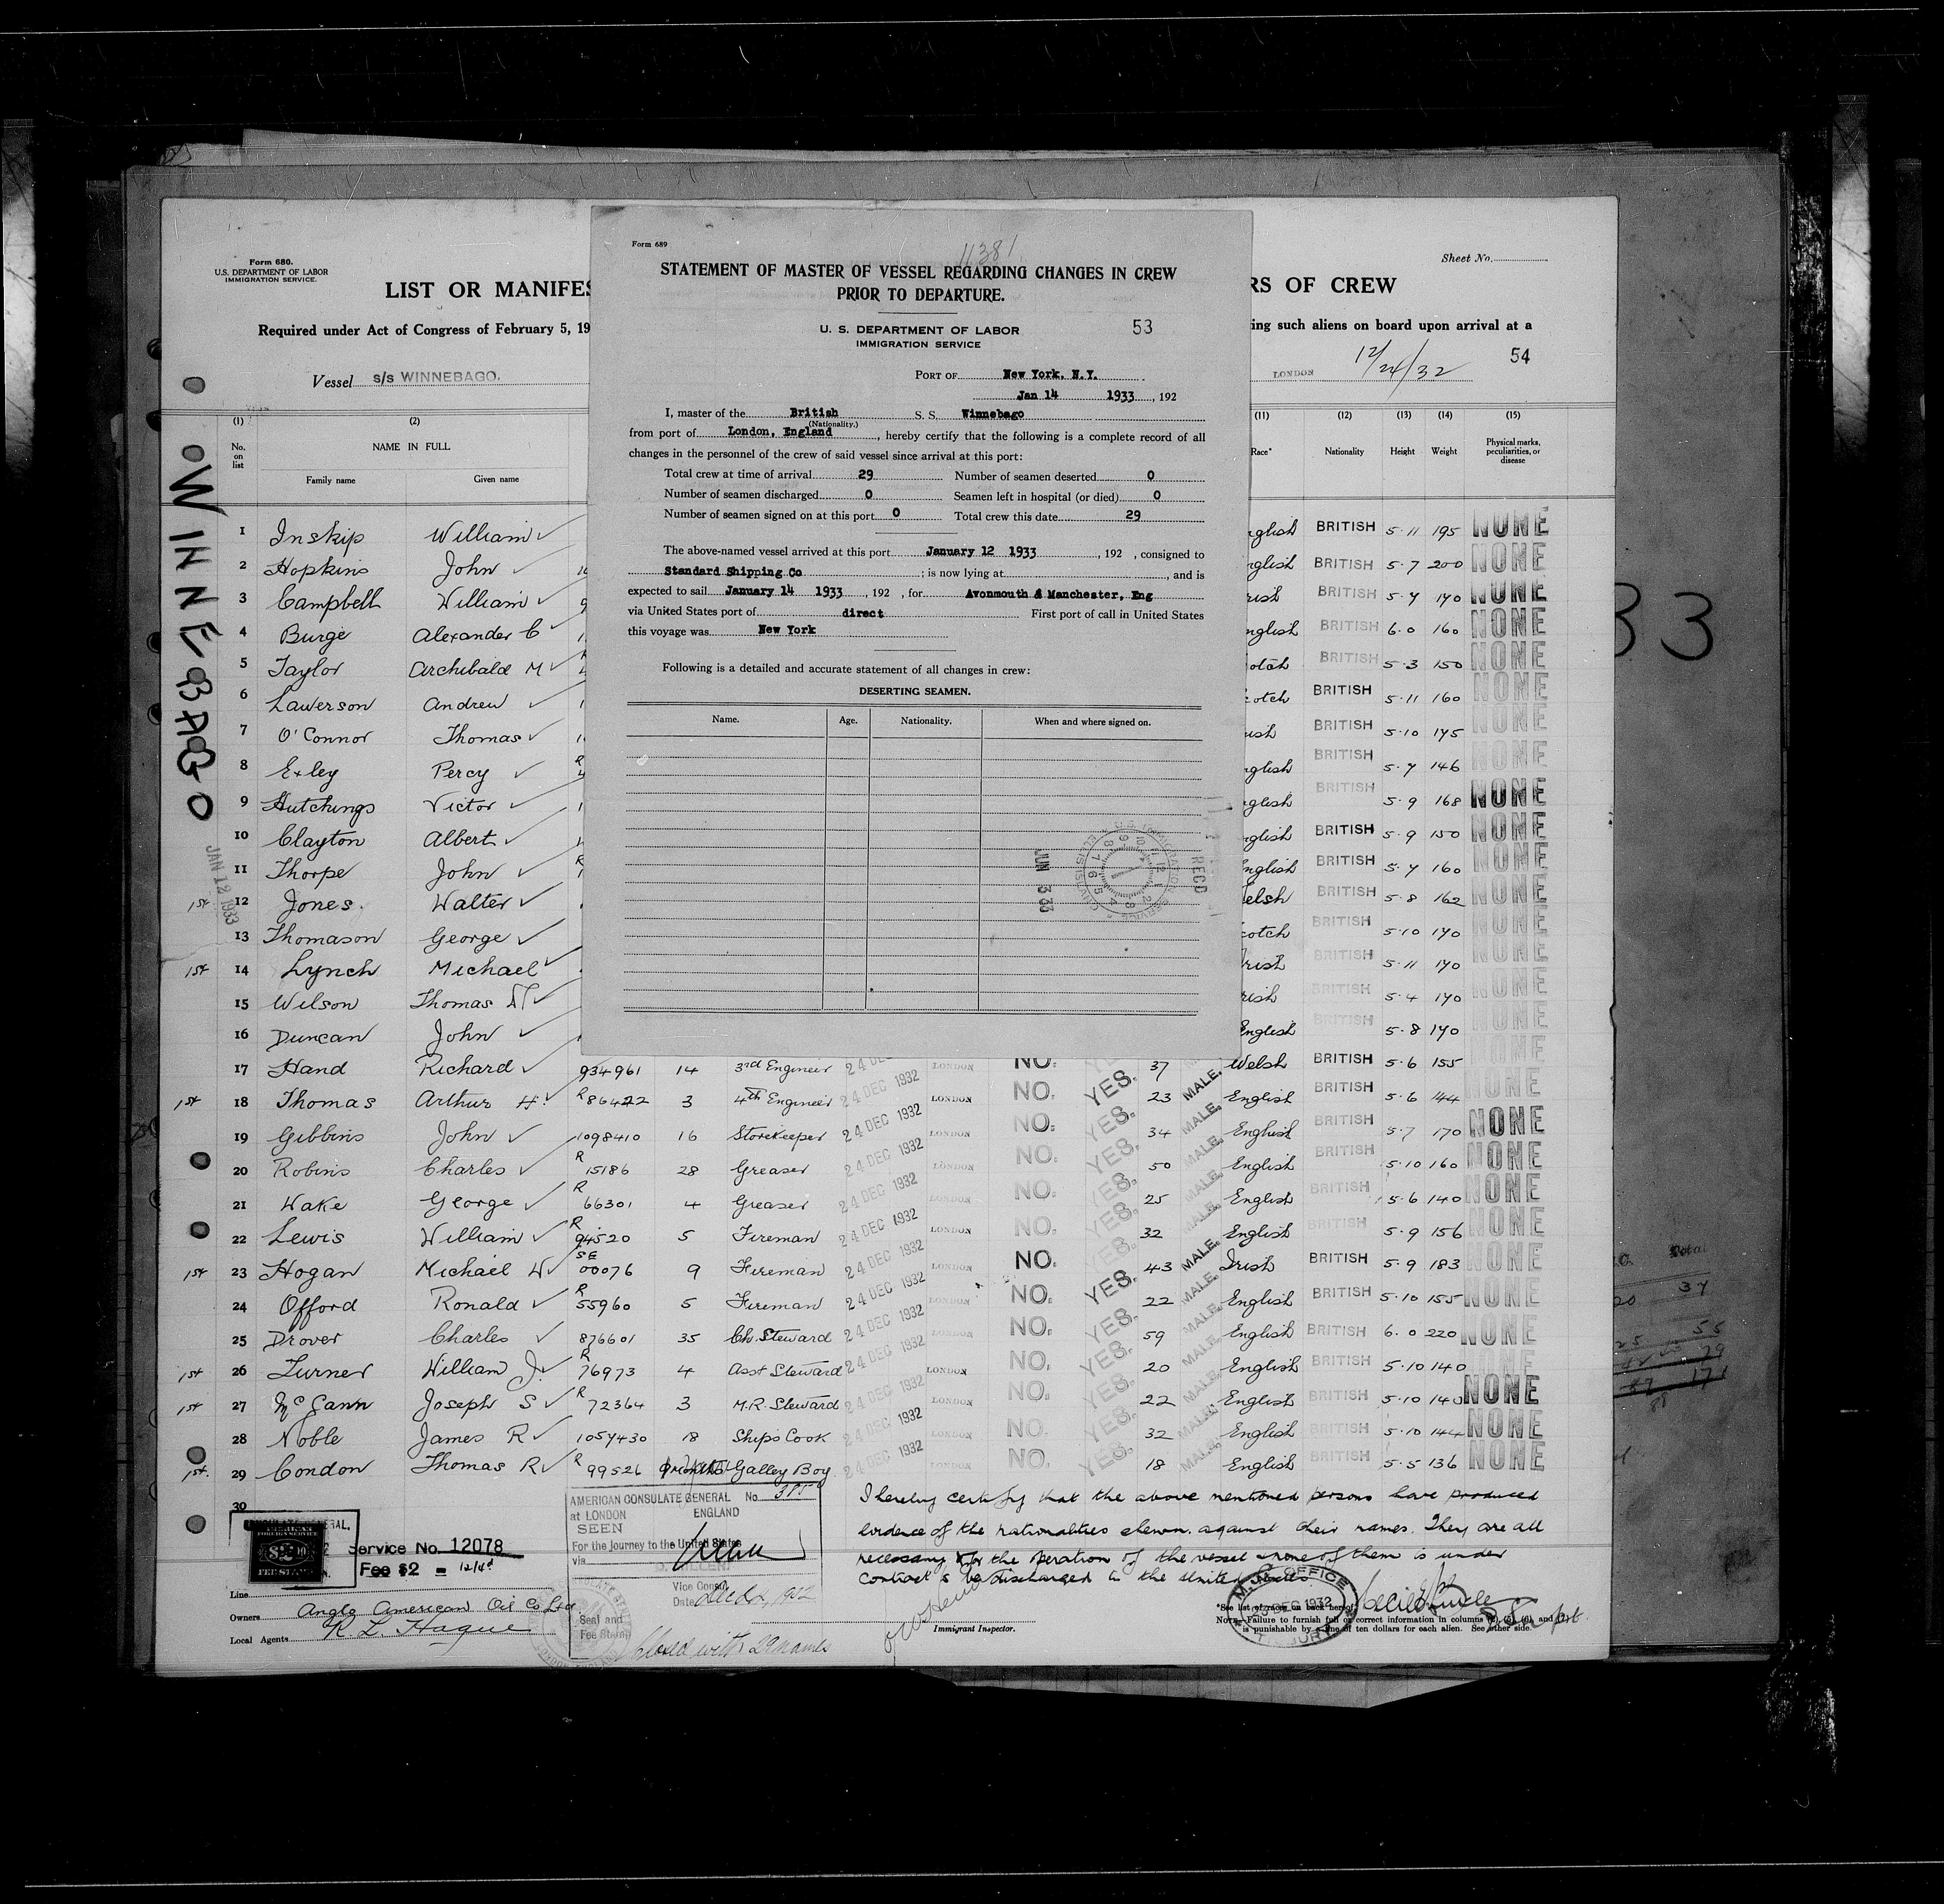 Form 689
11381
STATEMENT OF MASTER OF VESSEL REGARDING CHANGES IN CREW
PRIOR TO DEPARTURE.
U. S. DEPARTMENT OF LABOR
IMMIGRATION SERVICE
53
PORT OF New York, N.Y.
Jan 14 1933, 192
I, master of the British S. S. Winnebago
(Nationality.)
from port of London, England, hereby certify that the following is a complete record of all
changes in the personnel of the crew of said vessel since arrival at this port:
Total crew at time of arrival 29 Number of seamen deserted 0
Number of seamen discharged 0 Seamen left in hospital (or died) 0
Number of seamen signed on at this port 0 Total crew this date 29
The above-named vessel arrived at this port January 12 1933, 192 , consigned to
Standard Shipping Co ; is now lying at , and is
expected to sail January 14 1933, 192 , for Avonmouth & Manchester, Eng
via United States port of direct First port of call in United States
this voyage was New York
Following is a detailed and accurate statement of all changes in crew:
DESERTING SEAMEN.
Name. Age. Nationality. When and where signed on.
JUN 3 33
RECD
Form 680.
U.S. DEPARTMENT OF LABOR
IMMIGRATION SERVICE.
Sheet No.
LIST OR MANIFES
RS OF CREW
Required under Act of Congress of February 5, 19
ing such aliens on board upon arrival at a
Vessel s/s WINNEBAGO.
LONDON 12/24/32
54
WINNEBAGO
JAN 12 1933
33
(1) (2) (11) (12) (13) (14) (15)
No. on list NAME IN FULL Race* Nationality Height Weight Physical marks, peculiarities, or disease
Family name Given name
1 Inskip William nglish BRITISH 5.11 195 NONE
2 Hopkins John nglish BRITISH 5.7 200 NONE
3 Campbell William rish BRITISH 5.7 170 NONE
4 Burge Alexander C nglish BRITISH 6.0 160 NONE
5 Taylor Archibald M otch BRITISH 5.3 150 NONE
6 Lawerson Andrew cotch BRITISH 5.11 160 NONE
7 O'Connor Thomas ish BRITISH 5.10 175 NONE
8 Exley Percy nglish BRITISH 5.7 146 NONE
9 Hutchings Victor nglish BRITISH 5.9 168 NONE
10 Clayton Albert nglish BRITISH 5.9 150 NONE
11 Thorpe John English BRITISH 5.7 160 NONE
1st 12 Jones. Walter elsh BRITISH 5.8 162 NONE
13 Thomason George cotch BRITISH 5.10 170 NONE
1st 14 Lynch Michael rish BRITISH 5.11 170 NONE
15 Wilson Thomas rish BRITISH 5.4 170 NONE
16 Duncan John English BRITISH 5.8 170 NONE
17 Hand Richard 934961 14 3rd Engineer 24 DEC LONDON NO. 37 Welsh BRITISH 5.6 155 NONE
1st 18 Thomas Arthur H. R 86422 3 4th Engineer 24 DEC 1932 LONDON NO. YES. 23 MALE. English BRITISH 5.6 144 NONE
19 Gibbins John 1098410 16 Storekeeper 24 DEC 1932 LONDON NO. YES. 34 MALE. English BRITISH 5.7 170 NONE
20 Robins Charles R 15186 28 Greaser 24 DEC 1932 LONDON NO. YES. 50 MALE. English BRITISH 5.10 160 NONE
21 Wake George R 66301 4 Greaser 24 DEC 1932 LONDON NO. YES. 25 MALE. English BRITISH 5.6 140 NONE
22 Lewis William R 94520 5 Fireman 24 DEC 1932 LONDON NO. YES. 32 MALE. English BRITISH 5.9 156 NONE
1st 23 Hogan Michael W SE 00076 9 Fireman 24 DEC 1932 LONDON NO. YES. 43 MALE. Irish BRITISH 5.9 183 NONE
24 Offord Ronald R 55960 5 Fireman 24 DEC 1932 LONDON NO. YES. 22 MALE. English BRITISH 5.10 155 NONE
25 Drover Charles 876601 35 Ch. Steward 24 DEC 1932 LONDON NO. YES. 59 MALE. English BRITISH 6.0 220 NONE
1st 26 Turner William J. R 76973 4 Asst Steward 24 DEC 1932 LONDON NO. YES. 20 MALE. English BRITISH 5.10 140 NONE
1st 27 McGann Joseph S R 72364 3 M.R. Steward 24 DEC 1932 LONDON NO. YES. 22 MALE. English BRITISH 5.10 140 NONE
28 Noble James R 1057430 18 Ships Cook 24 DEC 1932 LONDON NO. YES. 32 MALE. English BRITISH 5.10 144 NONE
1st. 29 Condon Thomas R R 99526 9 months Galley Boy. 24 DEC 1932 LONDON NO. YES. 18 MALE. English BRITISH 5.5 136 NONE
30
I hereby certify that the above mentioned persons have produced
evidence of the nationalities shewn against their names. They are all
necessary for the operation of the vessel & none of them is under
contract to be discharged in the United States.
AMERICAN CONSULATE GENERAL No.
at LONDON ENGLAND
SEEN
For the Journey to the United States
via
Vice Consul
Date
Seal and
Fee Stamp
closed with 29 names
Service No. 12078
Fee $2 = 12/4d
Line
Owners Anglo American Oil Co Ltd
Local Agents R. L. Hague
Immigrant Inspector.
M.M. OFFICE
DEC 1932
TILBURY
*See list of races on back hereof.
NOTE.—Failure to furnish full or correct information in columns (2), (5), (6), and
is punishable by a fine of ten dollars for each alien. See other side.